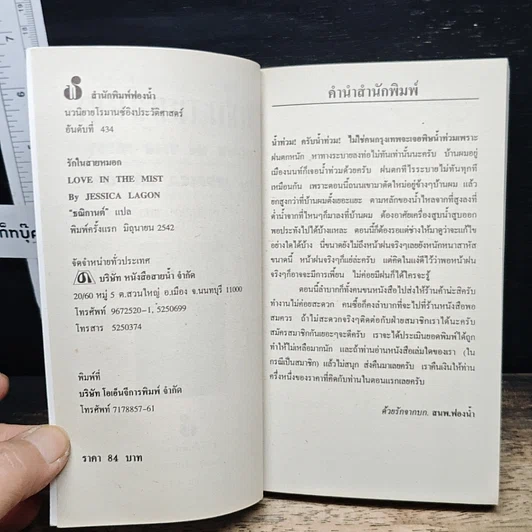 สำนักพิมพ์ฟองน้ำ
นวนิยายโรมานซ์อิงประวัติศาสตร์
อันดับที่ 434
รักในสายหมอก
LOVE IN THE MIST
By JESSICA LAGON
"ธณิกานต์" แปล
พิมพ์ครั้งแรก มิถุนายน 2542
จัดจำหน่ายทั่วประเทศ
บริษัท หนังสือสายน้ำ จำกัด
20/60 หมู่ 5 ต.สวนใหญ่ อ.เมือง จ.นนทบุรี 11000
โทรศัพท์ 9672520-1, 5250699
โทรสาร 5250374
พิมพ์ที่
บริษัท โอเอ็นจีการพิมพ์ จำกัด
โทรศัพท์ 7178857-61
ราคา 84 บาท
คำนำสำนักพิมพ์
น้ำท่วม! ครับน้ำท่วม! ไม่ใช่คนกรุงเทพจะเจอพิษน้ำท่วมเพราะ
ฝนตกหนัก หาทางระบายลงท่อไม่ทันเท่านั้นนะครับ บ้านผมอยู่
เมืองนนท์ก็เจอน้ำท่วมด้วยครับ ฝนตกทีไรระบายไม่ทันทุกที
เหมือนกัน เพราะตอนนี้ถนนเขามาตัดใหม่อยู่ข้างๆบ้านผม แล้ว
ยกสูงกว่าที่บ้านผมตั้งเยอะแยะ ตามหลักของน้ำไหลจากที่สูงลงที่
ต่ำน้ำจากที่ไหนๆก็มาลงที่บ้านผม ต้องอาศัยเครื่องสูบน้ำสูบออก
พอประทังไปได้บ้างแหละ ตอนนี้ก็ต้องรอแต่ช่างให้มาดูว่าจะแก้ไข
อย่างใดได้บ้าง นี่ขนาดยังไม่ถึงหน้าฝนจริงๆเลยยังหนักหนาสาหัส
ขนาดนี้ หน้าฝนจริงๆก็แย่ล่ะครับ แต่คิดในแง่ดีไว้ว่าพอหน้าฝน
จริงๆก็อาจจะมีการเพี้ยน ไม่ค่อยมีฝนก็ได้ใครจะรู้
ตอนนี้ลำบากก็ทั้งคนขนหนังสือไปส่งให้ร้านค้าน่ะสิครับ
ทำงานไม่ค่อยสะดวก คนซื้อก็คงลำบากที่จะไปที่ร้านหนังสือพอ
สมควร ถ้าไม่สะดวกจริงๆติดต่อกับฝ่ายสมาชิกเราได้นะครับ
สมัครสมาชิกกันเยอะๆจะดีครับ เราจะได้ประเมินยอดพิมพ์ได้ถูก
ทำให้ไม่เหลือมากนัก และถ้าท่านอ่านหนังสือเล่มใดของเรา (ใน
กรณีเป็นสมาชิก) แล้วไม่สนุก ส่งคืนมาเลยครับ เราคืนเงินให้ท่าน
ครึ่งหนึ่งของราคาที่คิดกับท่านในตอนแรกเลยครับ
ด้วยรักจากบก. สนพ.ฟองน้ำ